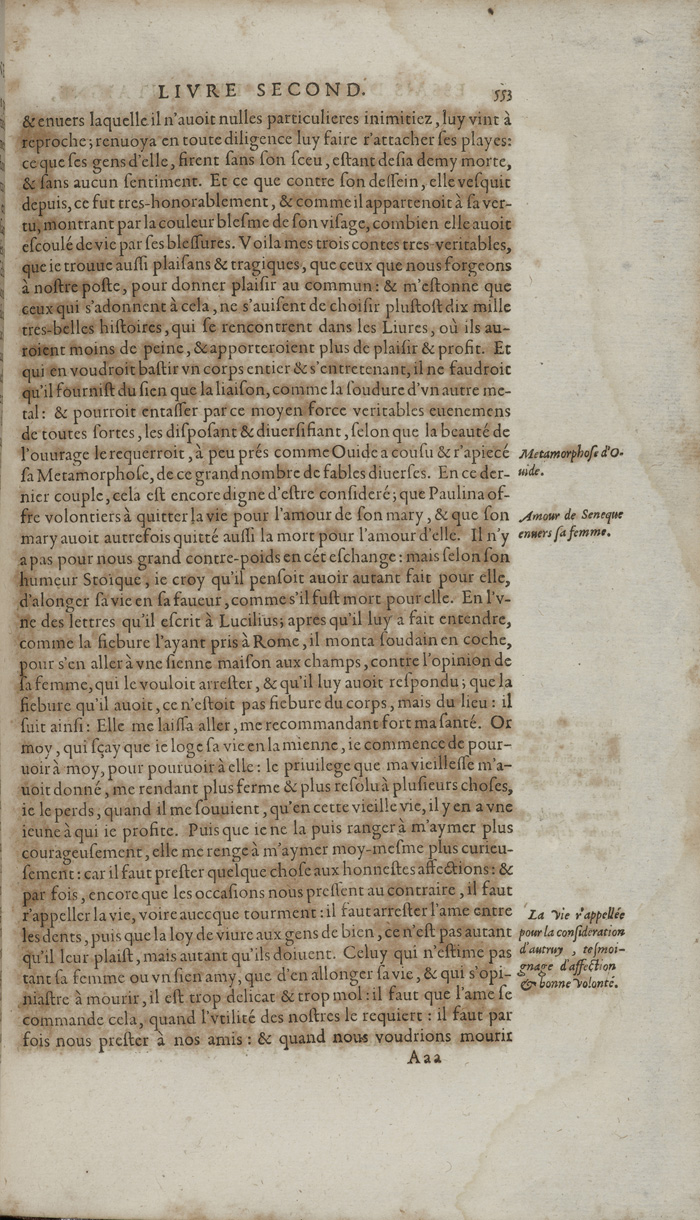 LIVRE SECOND. 553
& enuers laquelle il n'auoit nulles particulieres inimitiez, luy vint à
reproche; renuoya en toute diligence luy faire r'attacher ſes playes:
ce que ſes gens d'elle, firent ſans ſon ſceu, eſtant deſia demy morte,
& ſans aucun ſentiment. Et ce que contre ſon deſſein, elle veſquit
depuis, ce fut tres-honorablement, & comme il appartenoit à ſa ver-
tu, montrant par la couleur bleſme de ſon viſage, combien elle auoit
eſcoulé de vie par ſes bleſſures. Voila mes trois contes tres-veritables,
que ie trouue auſſi plaiſans & tragiques, que ceux que nous forgeons
à noſtre poſte, pour donner plaiſir au commun: & m'eſtonne que
ceux qui s'adonnent à cela, ne s'auiſent de choiſir pluſtoſt dix mille
tres-belles hiſtoires, qui ſe rencontrent dans les Liures, où ils au-
roient moins de peine, & apporteroient plus de plaiſir & profit. Et
qui en voudroit baſtir vn corps entier & s'entretenant, il ne faudroit
qu'il fourniſt du ſien que la liaiſon, comme la ſoudure d'vn autre me-
tal: & pourroit entaſſer par ce moyen force veritables euenemens
de toutes ſortes, les diſpoſant & diuerſifiant, ſelon que la beauté de
l'ouurage le requerroit, à peu prés comme Ouide a couſu & r'apiecé
ſa Metamorphoſe, de ce grand nombre de fables diuerſes. En ce der-
nier couple, cela eſt encore digne d'eſtre conſideré; que Paulina of-
fre volontiers à quitter la vie pour l'amour de ſon mary, & que ſon
mary auoit autrefois quitté auſſi la mort pour l'amour d'elle. Il n'y
a pas pour nous grand contre-poids en cét eſchange: mais ſelon ſon
humeur Stoïque, ie croy qu'il penſoit auoir autant fait pour elle,
d'alonger ſa vie en ſa faueur, comme s'il fuſt mort pour elle. En l'v-
ne des lettres qu'il eſcrit à Lucilius; apres qu'il luy a fait entendre,
comme la fiebure l'ayant pris à Rome, il monta ſoudain en coche,
pour s'en aller à vne ſienne maiſon aux champs, contre l'opinion de
ſa femme, qui le vouloit arreſter, & qu'il luy auoit reſpondu; que la
fiebure qu'il auoit, ce n'eſtoit pas fiebure du corps, mais du lieu: il
ſuit ainſi: Elle me laiſſa aller, me recommandant fort ma ſanté. Or
moy, qui ſçay que ie loge ſa vie en la mienne, ie commence de pour-
uoir à moy, pour pouruoir à elle: le priuilege que ma vieilleſſe m'a-
uoit donné, me rendant plus ferme & plus reſolu à pluſieurs choſes,
ie le perds, quand il me ſouuient, qu'en cette vieille vie, il y en a vne
ieune à qui ie profite. Puis que ie ne la puis ranger à m'aymer plus
courageuſement, elle me renge à m'aymer moy-meſme plus curieu-
ſement: car il faut preſter quelque choſe aux honneſtes affections: &
par fois, encore que les occaſions nous preſſent au contraire, il faut
r'appeller la vie, voire auecque tourment: il faut arreſter l'ame entre
les dents, puis que la loy de viure aux gens de bien, ce n'eſt pas autant
qu'il leur plaiſt, mais autant qu'ils doiuent. Celuy qui n'eſtime pas
tant ſa femme ou vn ſien amy, que d'en allonger ſa vie, & qui s'opi-
niaſtre à mourir, il eſt trop delicat & trop mol: il faut que l'ame ſe
commande cela, quand l'vtilité des noſtres le requiert: il faut par
fois nous preſter à nos amis: & quand nous voudrions mourir
Aaa
Metamorphoſe d'O-
uide.
Amour de Seneque
enuers ſa femme.
La vie r'appellée
pour la conſideration
d'autruy, teſmoi-
gnage d'affection
& bonne volonté.